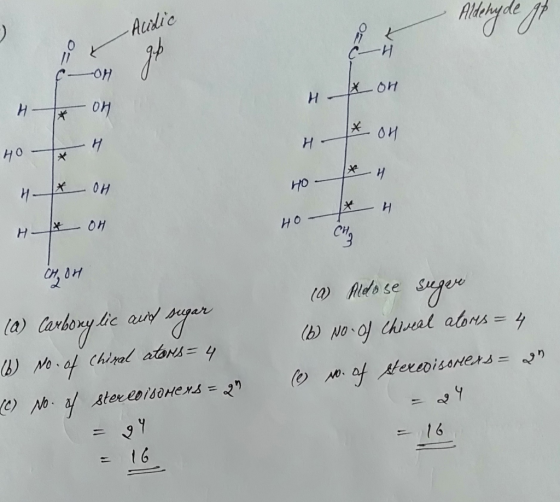 )
Acidic
gp
O
C OH
H OH
*
HO H
*
H * OH
H * OH
CH2OH
(a) Carboxylic acid sugar
(b) No. of chiral atoms = 4
(c) No. of stereoisomers = 2^n
= 2^4
= 16
Aldehyde gp
O
C H
H * OH
H * OH
HO * H
HO * H
CH3
(a) Aldose sugar
(b) No. of chiral atoms = 4
(c) No. of stereoisomers = 2^n
= 2^4
= 16